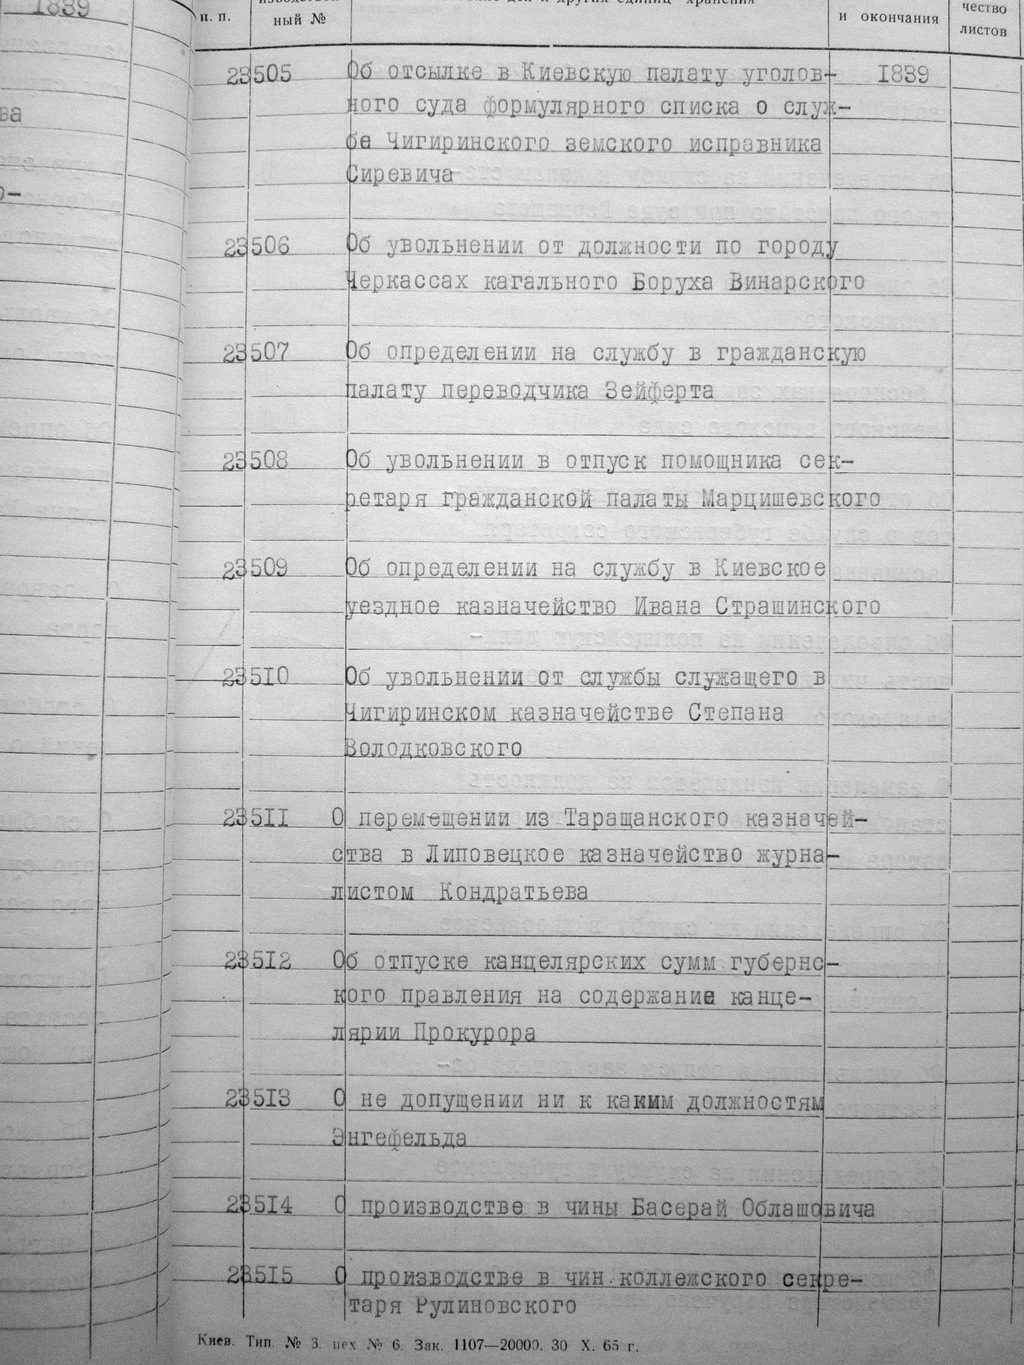 1839
п. п.
ный №
и окончания
чество
листов
23505 Об отсылке в Киевскую палату уголов- 1839
ного суда формулярного списка о служ-
бе Чигиринского земского исправника
Сиревича
23506 Об увольнении от должности по городу
Черкассах кагального Боруха Винарского
23507 Об определении на службу в гражданскую
палату переводчика Зейферта
23508 Об увольнении в отпуск помощника сек-
ретаря гражданской палаты Марцишевского
23509 Об определении на службу в Киевское
уездное казначейство Ивана Страшинского
23510 Об увольнении от службы служащего в
Чигиринском казначействе Степана
Володковского
23511 О перемещении из Таращанского казначей-
ства в Липовецкое казначейство журна-
листом Кондратьева
23512 Об отпуске канцелярских сумм губернс-
кого правления на содержание канце-
лярии Прокурора
23513 О не допущении ни к каким должностям
Энгефельда
23514 О производстве в чины Басерай Облашовича
23515 О производстве в чин коллежского секре-
таря Рулиновского
Киев. Тип. № 3. цех № 6. Зак. 1107—20000. 30 X. 65 г.